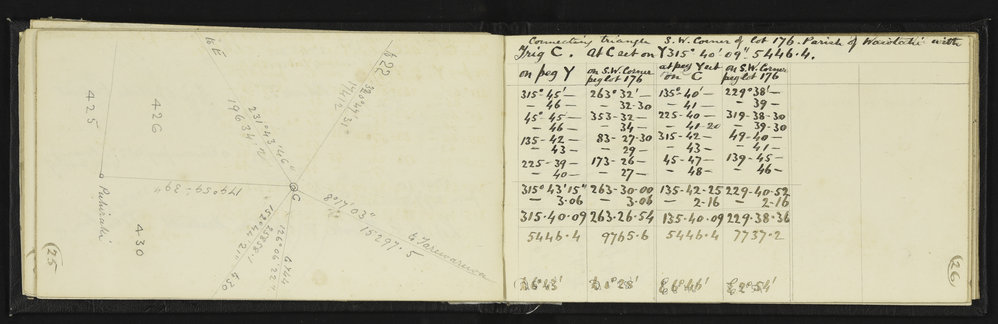 to E
622
328° 47' 31"
425
426
231° 43' 46"
19634.2
Puhiraki
179°-59'-39"
C
8° 17' 03"
15297.5
to Tarewarewa
430
430
(25)
Connecting triangle S.W. Corner of lot 176. Parish of Waiotahi with
Trig C. At C set on Y 315° 40' 09". 5446.4.
on peg Y	on S.W. Corner peg lot 176	at peg Y set on C	on S.W. Corner peg lot 176
315° 45'—	263° 32'—	135°-40'—	229° 38'—
— 46 —	— 32-30	— 41 —	— 39 —
45°-45—	353-32—	225-40—	319-38-30
— 46 —	— 34 —	— 41-20	— 39-30
135-42—	83-27-30	315-42—	49-40—
— 43 —	— 29 —	— 43 —	— 41 —
225-39—	173-26—	45-47—	139-45—
— 40 —	— 27 —	— 48 —	— 46 —
315° 43' 15"	263-30-00	135-42-25	229-40-52
— 3.06	— 3.06	— 2-16	— 2-16
315-40-09	263-26-54	135-40-09	229-38-36
5446.4	9765.6	5446.4	7737.2
(26)